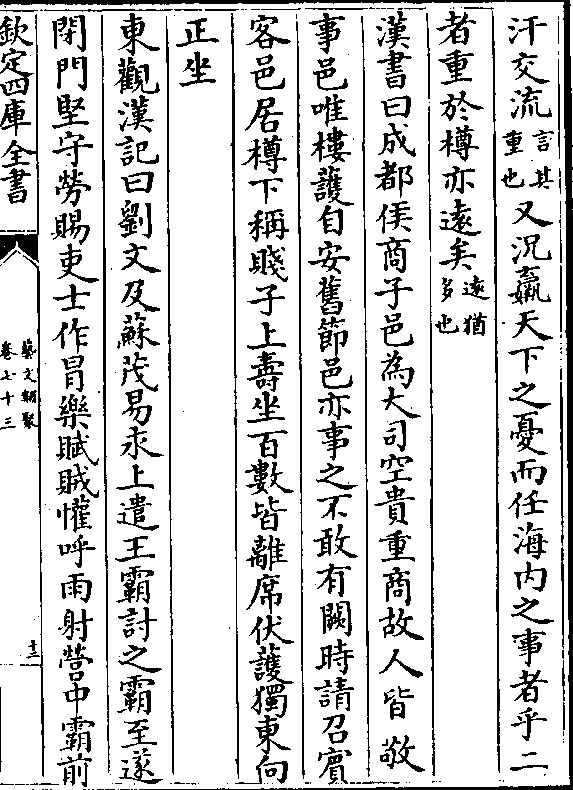 汗交流言其重也又況贏天下之憂而任海内之事者乎二
者重於樽亦遠矣遠猶多也
漢書曰成都侯商子邑為大司空貴重商故人皆敬
事邑唯樓護自安舊節邑亦事之不敢有闕時請召賓
客邑居樽下稱賤子上壽坐百數皆離席伏護獨東向
正坐
東觀漢記曰劉文及蘇茂易求上遣王霸討之霸至遂
閉門堅守勞賜吏士作冒樂賦賊懽呼雨射營中霸前
欽定四庫全書
藝文類聚
卷七十三
十三